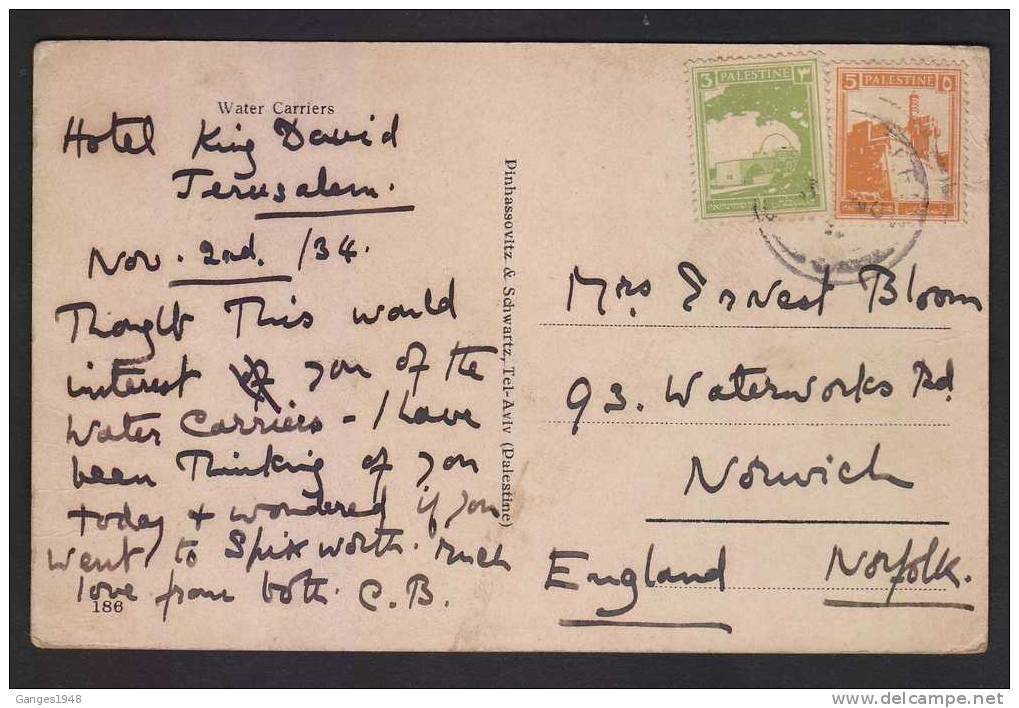 Water Carriers
Hotel King David
Jerusalem.
Nov. 2nd. /34.
Thought This would
interest you of the
Water Carriers - I have
been Thinking of you
today + wondered if you
went to Spixworth. much
love from both. C.B.
186
Pinhassovitz & Schwartz, Tel-Aviv (Palestine)
3 PALESTINE ٣
5 PALESTINE ٥
Mrs Ernest Bloom
93. Waterworks Rd.
Norwich
England Norfolk.
Ganges1948
www.delcampe.net